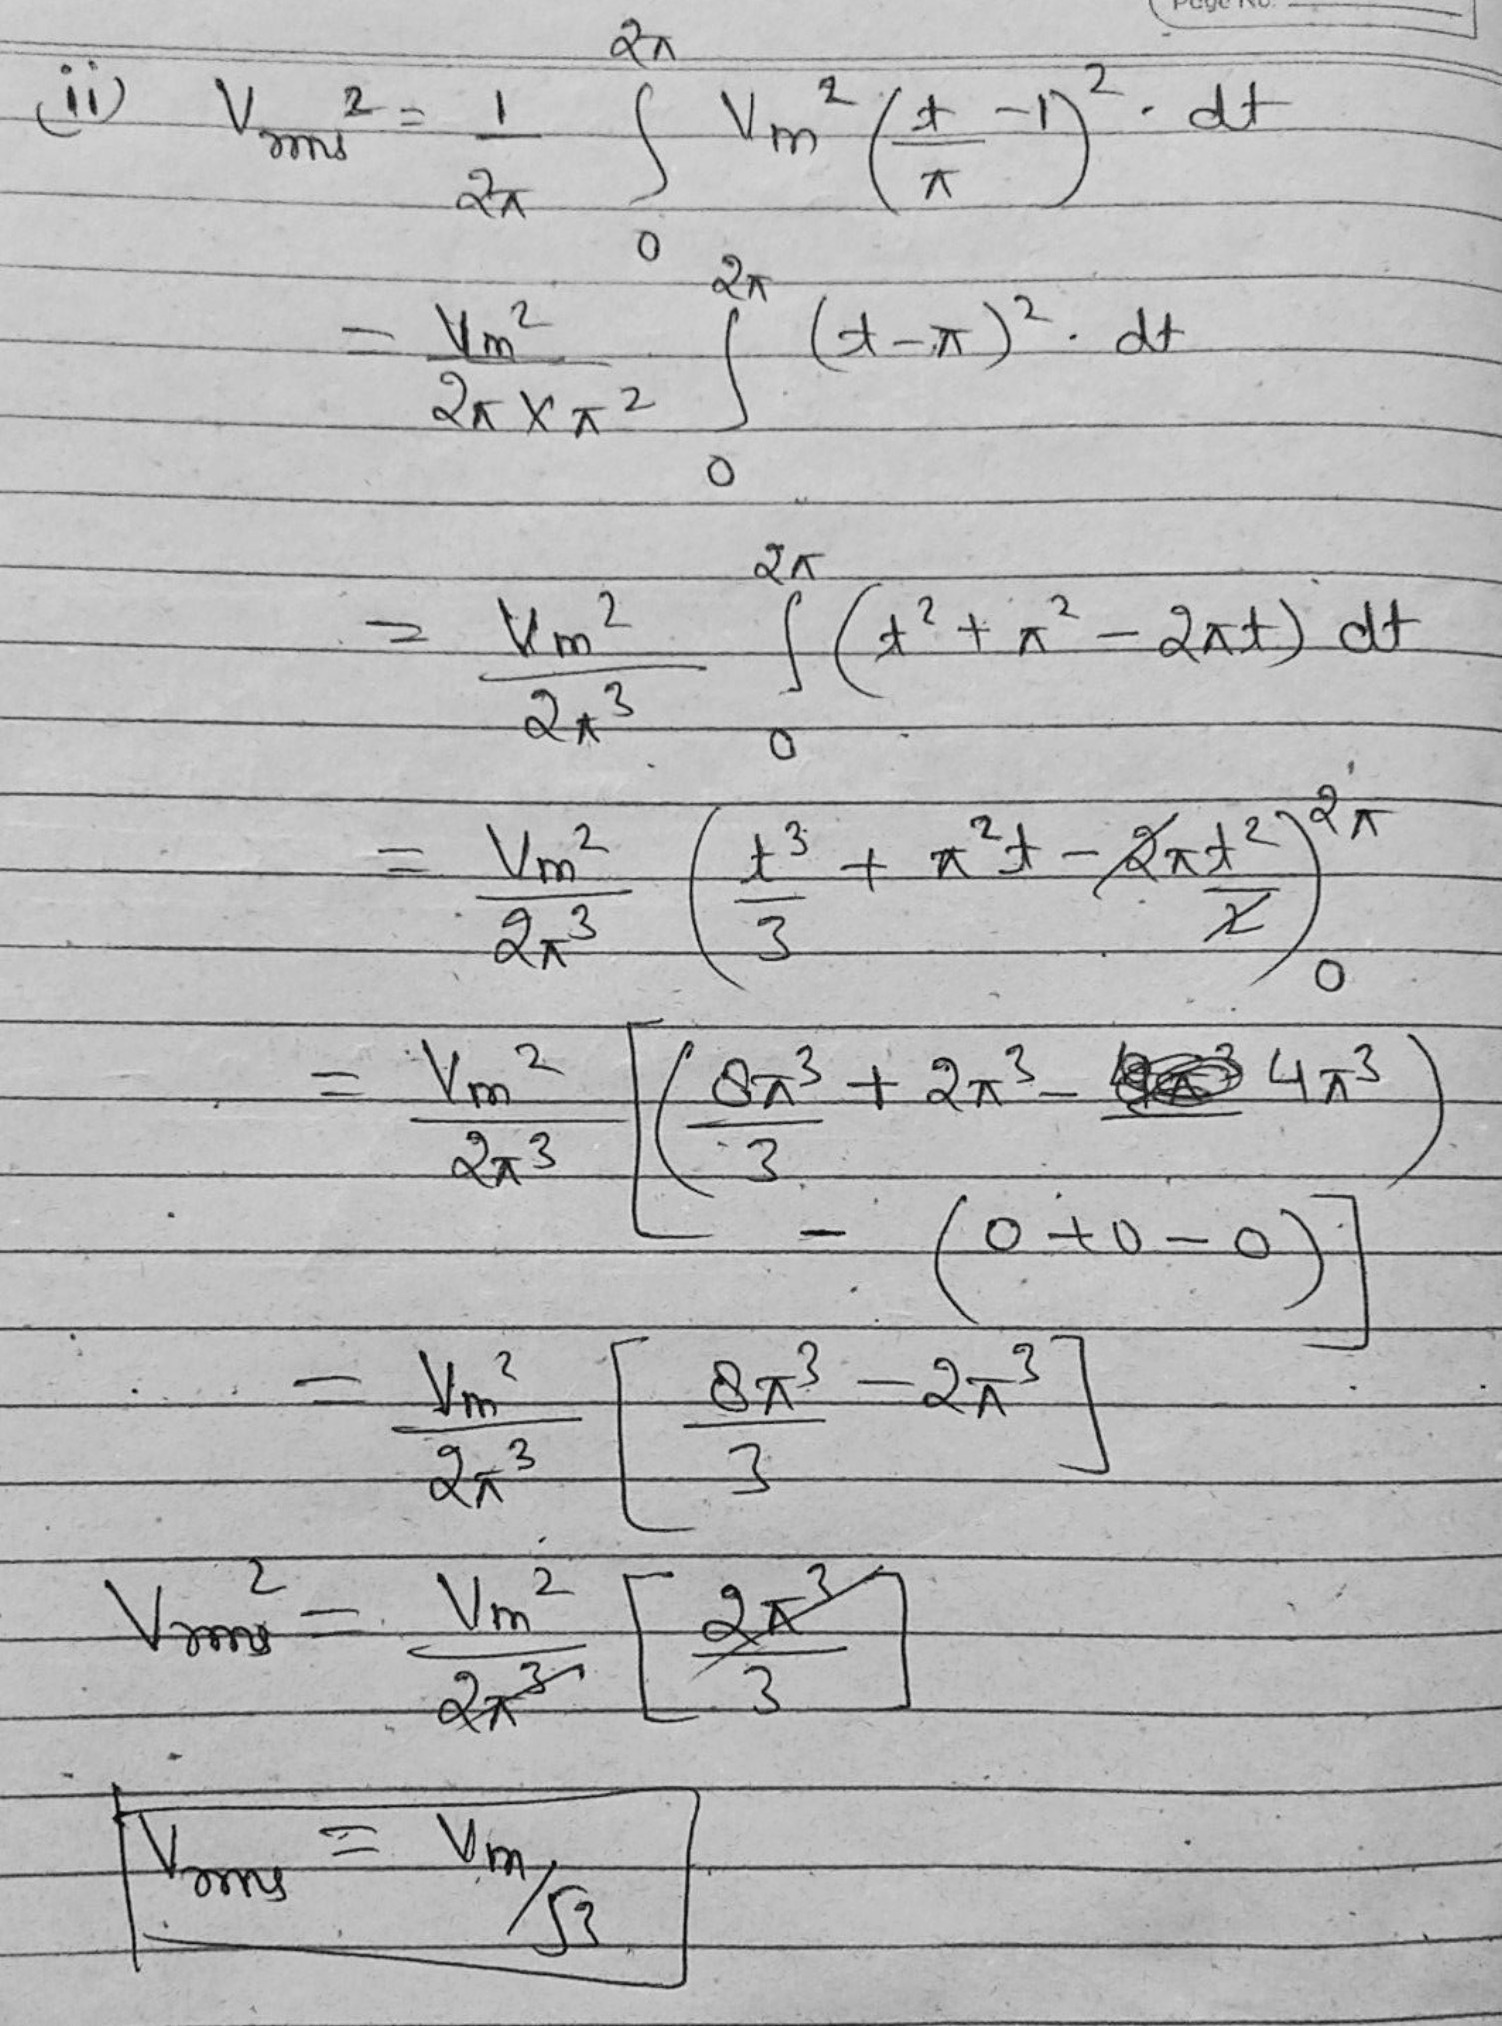 Page No.
(ii) Vrms² = 1/2π ∫₀^2π Vm² (t/π - 1)² · dt
= Vm²/2π×π² ∫₀^2π (t-π)² · dt
= Vm²/2π³ ∫₀^2π (t² + π² - 2πt) dt
= Vm²/2π³ (t³/3 + π²t - 2πt²/2)₀^2π
= Vm²/2π³ [(8π³/3 + 2π³ - 4π³)
- (0+0-0)]
= Vm²/2π³ [8π³/3 - 2π³]
Vrms² = Vm²/2π³ [2π³/3]
Vrms = Vm/√3